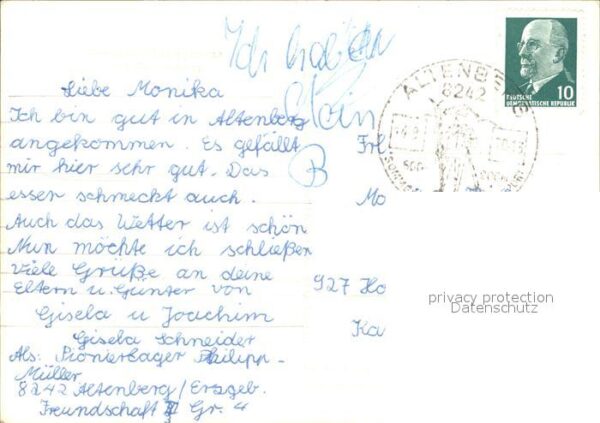 Ich
Liebe Monika
Ich bin gut in Altenberg
angekommen. Es gefällt
mir hier sehr gut. Das
essen schmeckt auch.
Auch das Wetter ist schön
Nun möchte ich schließen
Viele Grüße an deine
Eltern u. Günter von
Gisela u Joachim
Gisela Schneider
Als: Pionierlager Philipp-
Müller
8242 Altenberg/Erzgeb.
Freundschaft II Gr. 4
DEUTSCHE
DEMOKRATISCHE REPUBLIK
10
ALTENBERG
8242
Frl
Mo
927 Ho
Ka
privacy protection
Datenschutz